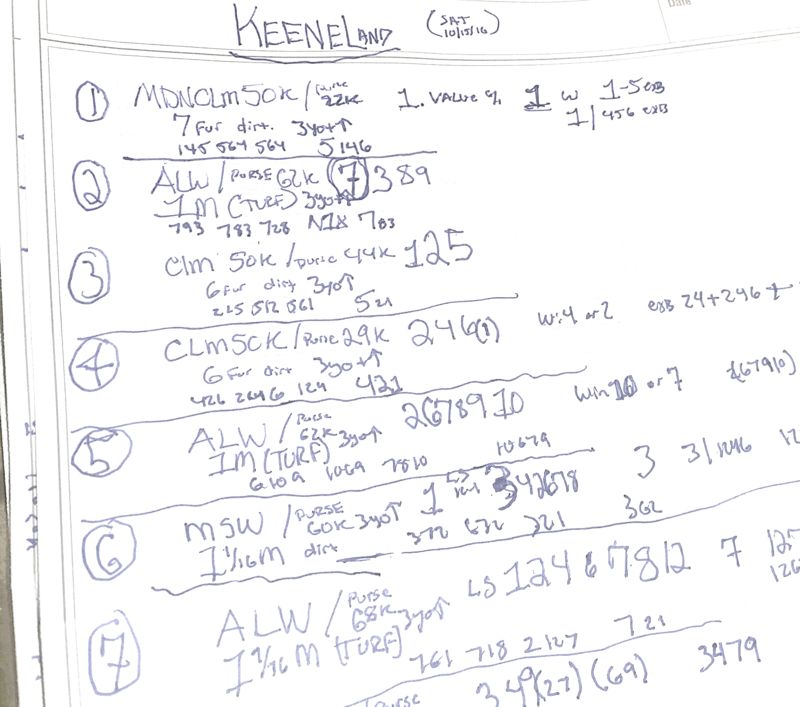 Date
KEENELAND (SAT 10/15/16)
① MDNCLM50K / Purse 22K 1. VALUE % 1 W 1-5 EXB
7 Fur dirt. 3yo+↑ 1/456 EXB
145 564 564 5146
② ALW / PURSE 62K (7) 389
1M (TURF) 3yo+↑
793 783 728 N1X 783
③ Clm 50K / Purse 44K 125
6 Fur dirt 3yo↑
225 512 561 521
④ CLM50K / Purse 29K 246(1) Win 4 or 2 EXB 24+246
6 Fur Dirt 3yo+↑
426 2646 124 421
⑤ ALW / Purse 62K 3yo↑ 2678910 Win 10 or 7 (67910)
1M (TURF) 10679
6109 1069 7810
⑥ MSW / PURSE 60K 3yo↑ 1 342678 3 3/1246 12
1 1/16M dirt 372 632 321 362
⑦ ALW / Purse 68K 3yo↑ LS 12467812 7 125
1 1/16 M (TURF) 126
761 718 2127 721
Purse 349(27)(69) 3479